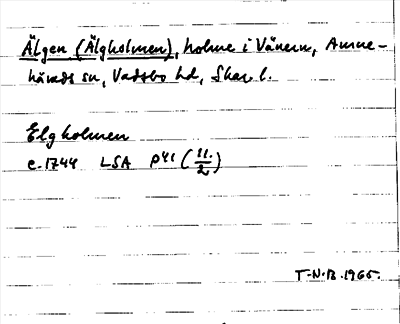 Älgen (Älgholmen), holme i Vänern, Amne-
härads sn, Vadsbo hd, Skar l.
Elgholmen
c. 1744 LSA P41 (11/2)
T.N.B. 1965.